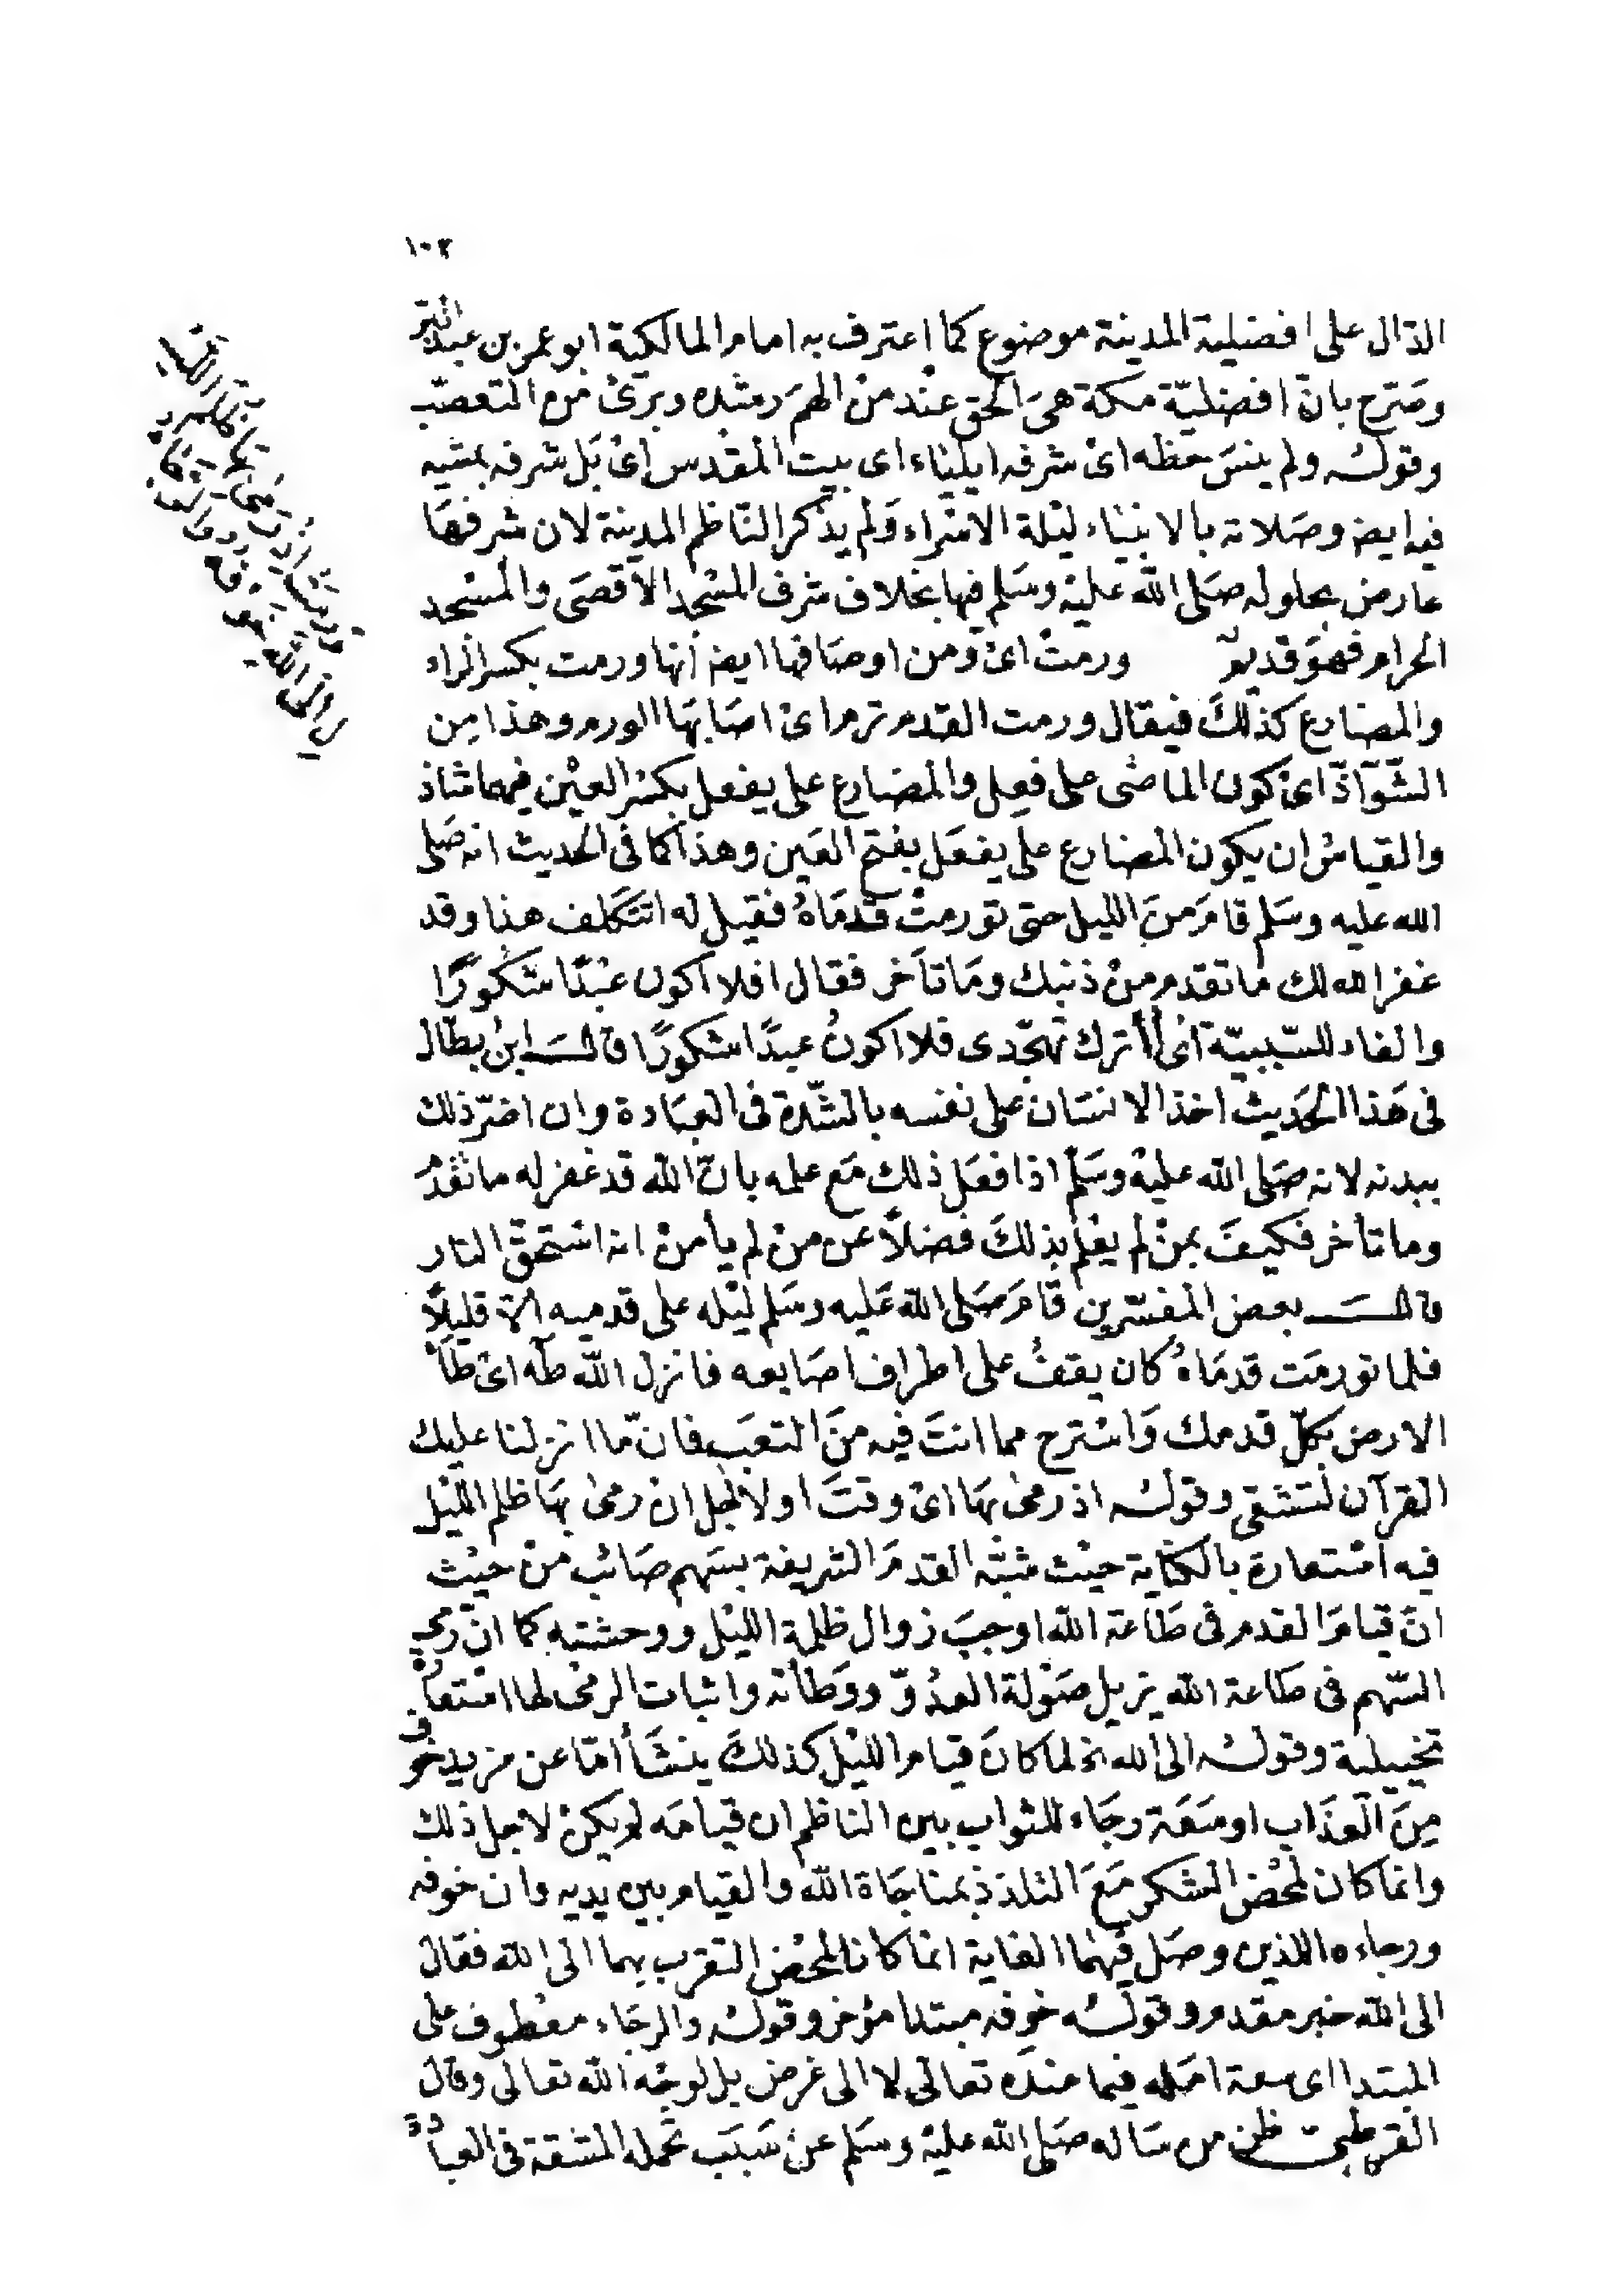 ١٠٣
الدال على افضلية المدينة موضوع كما اعترف به امام المالكية ابو عمر بن عبد البر
وصَرّح بانّ افضليّة مكة هىَ الحق عند منْ الهمَ رشده وبرئ من التعصّب
وقوله ولم ينسَ حظه اىْ شرفه ايلياء اى بيت المقدس اىْ بَل شرفه بمشيه
فيه ايض وصَلاته بالانبياء ليْلة الاسْراء وَلم يذكر الناظم المدينة لان شرفهَا
عارض بحلوله صَلى الله عليْه وسَلم فيها بخلاف شرف المسْجد الاقصَى والمسْجد
الحرام فهوَ قديم ورمتْ اىْ ومن اوصَافها ايض أنها ورمت بكسر الراء
والمضارع كذلكَ فيقال ورمت القدم ترم اىْ اصَابهَا الورم وهذا مِن
الشّوآذّ اىْ كون الماضى على فعِل والمضارع على يفعل بكسْر العيْن فيهما شاذ
والقياسُ ان يكون المضارع على يفعَل بفتح العَين وهذا كما فى الحديث انه صَلى
الله عليه وسَلم قامَ منَ الليل حتى تورمتْ قدمَاهُ فقيل له اتتكلف هذا وقد
غفر الله لك مَا تقدم منْ ذنبك ومَا تأخر فقال افلا اكون عبْدًا شكورًا
والفاء للسّببيّة اىْ أأترك تهجّدى فلا اكونُ عبدًا شكورًا قالَ ابنُ بطّال
فى هَذا الحَديث اخذ الانسَان على نفسه بالشّدة فى العبَادة وان اضرّ ذلك
ببدنه لانه صَلى الله عليْه وسَلّم اذا فعَل ذلك مَع علمه بانّ الله قد غفر له ما تقدمُ
وما تأخر فكيفَ بمنْ لم يعْلم بذلكَ فضلاً عن منْ لم يأمنْ انه استحقّ النار
قالَ بعض المفسّرين قامَ صَلى الله عَليه وسَلم ليْله على قدميه الاّ قليلاً
فلما تورمَت قدمَاهُ كان يقفُ على اطراف اصَابعه فانزل الله طَه اىْ طَأْ
الارض بكلّ قدمك وَاسْترح مما انتَ فيه منَ التعَب فانّ مّا انزلنا عليك
القرآن لتشقى وقوله اذ رمىٰ بهَا اىْ وقتَ او لاجْل انْ رمىٰ بهَا ظلم الليْل
فيه اسْتعارة بالكنَاية حيْث شبّه القدمَ الشريفة بسَهم صَائب منْ حيْث
انّ قيامَ القدم فى طَاعة الله اوجبَ زوال ظلمة الليْل ووحشته كما انّ رمي
السّهم فى طَاعة الله يزيل صَوْلة العدُوّ ووَطأته واثبات الرمىْ لها استعارة
تخييلية وقوله الى الله الخ لما كانَ قيام الليْل كذلكَ ينشَأ امّا عن مزيد خوف
مِنَ العذَاب او سَعَة رجَاء للثواب بين الناظم ان قيامَه لم يكنْ لاجل ذلك
وانما كان لمحْض الشكر مَعَ التلذذ بمناجَاة الله والقيام بين يديه وان خوفه
ورجاءه اللذين وصَل فيْهما الغاية انما كانا لمحْض التقرب بهما الى الله فقال
الى الله خبر مقدم وقوله خوفه مبتدا مؤخر وقوله والرجَاء معْطوف على
المبتدا اى سعة امَله فيما عندَه تعالى لا الى غرض بل لوجْه الله تعالى وقال
القرطبى ظن من سَاله صَلى الله عليْه وسَلم عنْ سَبَب تحمله المشقة فى العبادة
ورمت اذ رمى بها ظلم الليل
الى الله خوفه